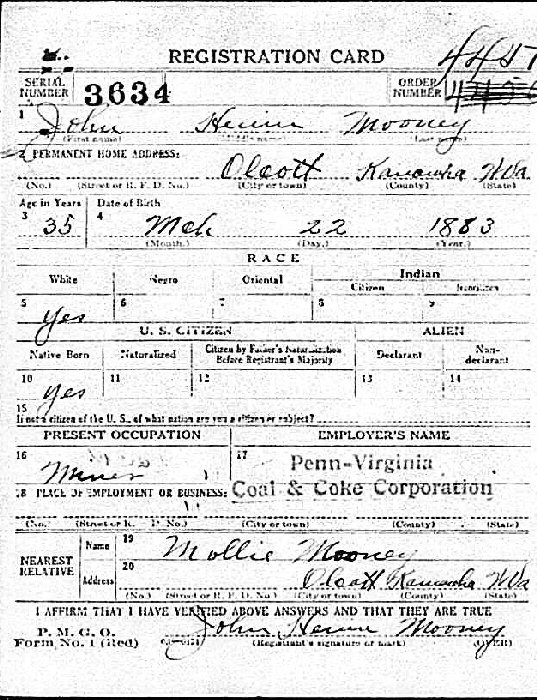 REGISTRATION CARD
SERIAL NUMBER 3634 ORDER NUMBER
1 John Henery Mooney
(First name) (Middle name) (Last name)
2 PERMANENT HOME ADDRESS:
Olcott Kanawha WVa
(No.) (Street or R. F. D. No.) (City or town) (County) (State)
Age in Years Date of Birth
3 35 4 Mch 22 1883
(Month.) (Day.) (Year.)
RACE
White Negro Oriental Indian
Citizen Noncitizen
5 Yes 6 7 8 9
U. S. CITIZEN ALIEN
Native Born Naturalized Citizen by Father's Naturalization Before Registrant's Majority Declarant Non-declarant
10 Yes 11 12 13 14
15
If not a citizen of the U. S., of what nation are you a citizen or subject?
PRESENT OCCUPATION EMPLOYER'S NAME
16 Miner 17 Penn-Virginia
18 PLACE OF EMPLOYMENT OR BUSINESS: Coal & Coke Corporation
(No.) (Street or R. F. D. No.) (City or town) (County) (State)
NEAREST RELATIVE Name 19 Mollie Mooney
Address 20 Olcott Kanawha WVa
(No.) (Street or R. F. D. No.) (City or town) (County) (State)
I AFFIRM THAT I HAVE VERIFIED ABOVE ANSWERS AND THAT THEY ARE TRUE
P. M. G. O.
Form No. 1 (Red) John Mooney
(Registrant's signature or mark) (OVER)